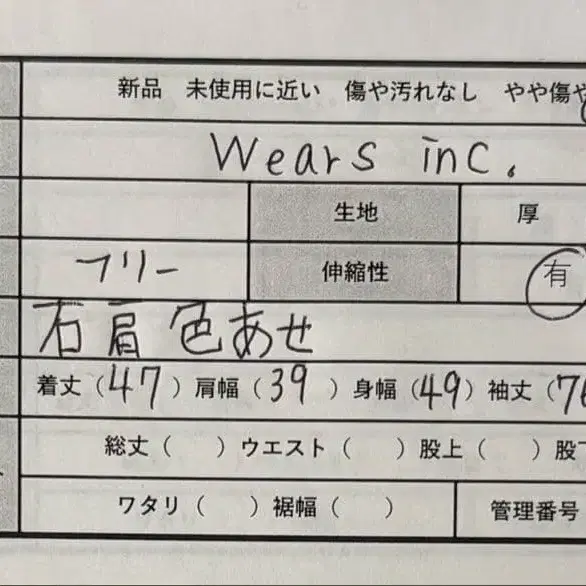 新品 未使用に近い 傷や汚れなし やや傷や
Wears inc.
生地 厚
フリー 伸縮性 有
石肩 色あせ
着丈（47）肩幅（39）身幅（49）袖丈（76
総丈（ ）ウエスト（ ）股上（ ）股下
ワタリ（ ）裾幅（ ） 管理番号